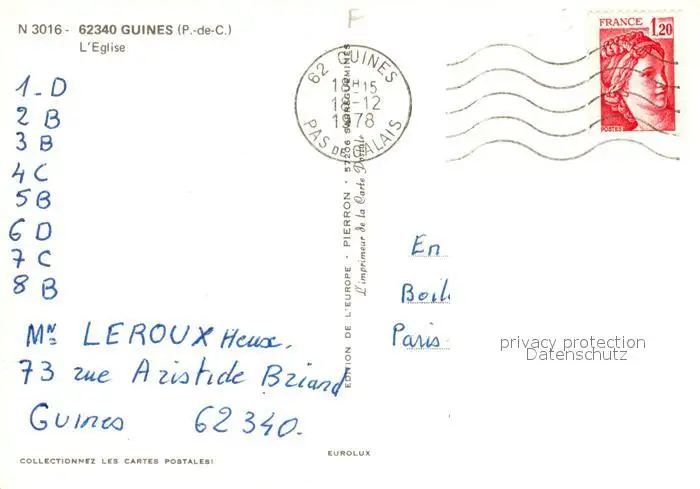 N 3016 - 62340 GUINES (P.-de-C.)
L'Eglise
FRANCE 1,20
POSTES
62 GUINES
18-12
1978
PAS DE CALAIS
1-D
2 B
3 B
4 C
5 B
6 D
7 C
8 B
Mr LEROUX
73 rue Aristide Briand
Guines 62340.
EDITION DE L'EUROPE - PIERRON - 57206 SARREGUEMINES
L'imprimeur de la Carte Postale
En
Paris
privacy protection
Datenschutz
EUROLUX
COLLECTIONNEZ LES CARTES POSTALES!